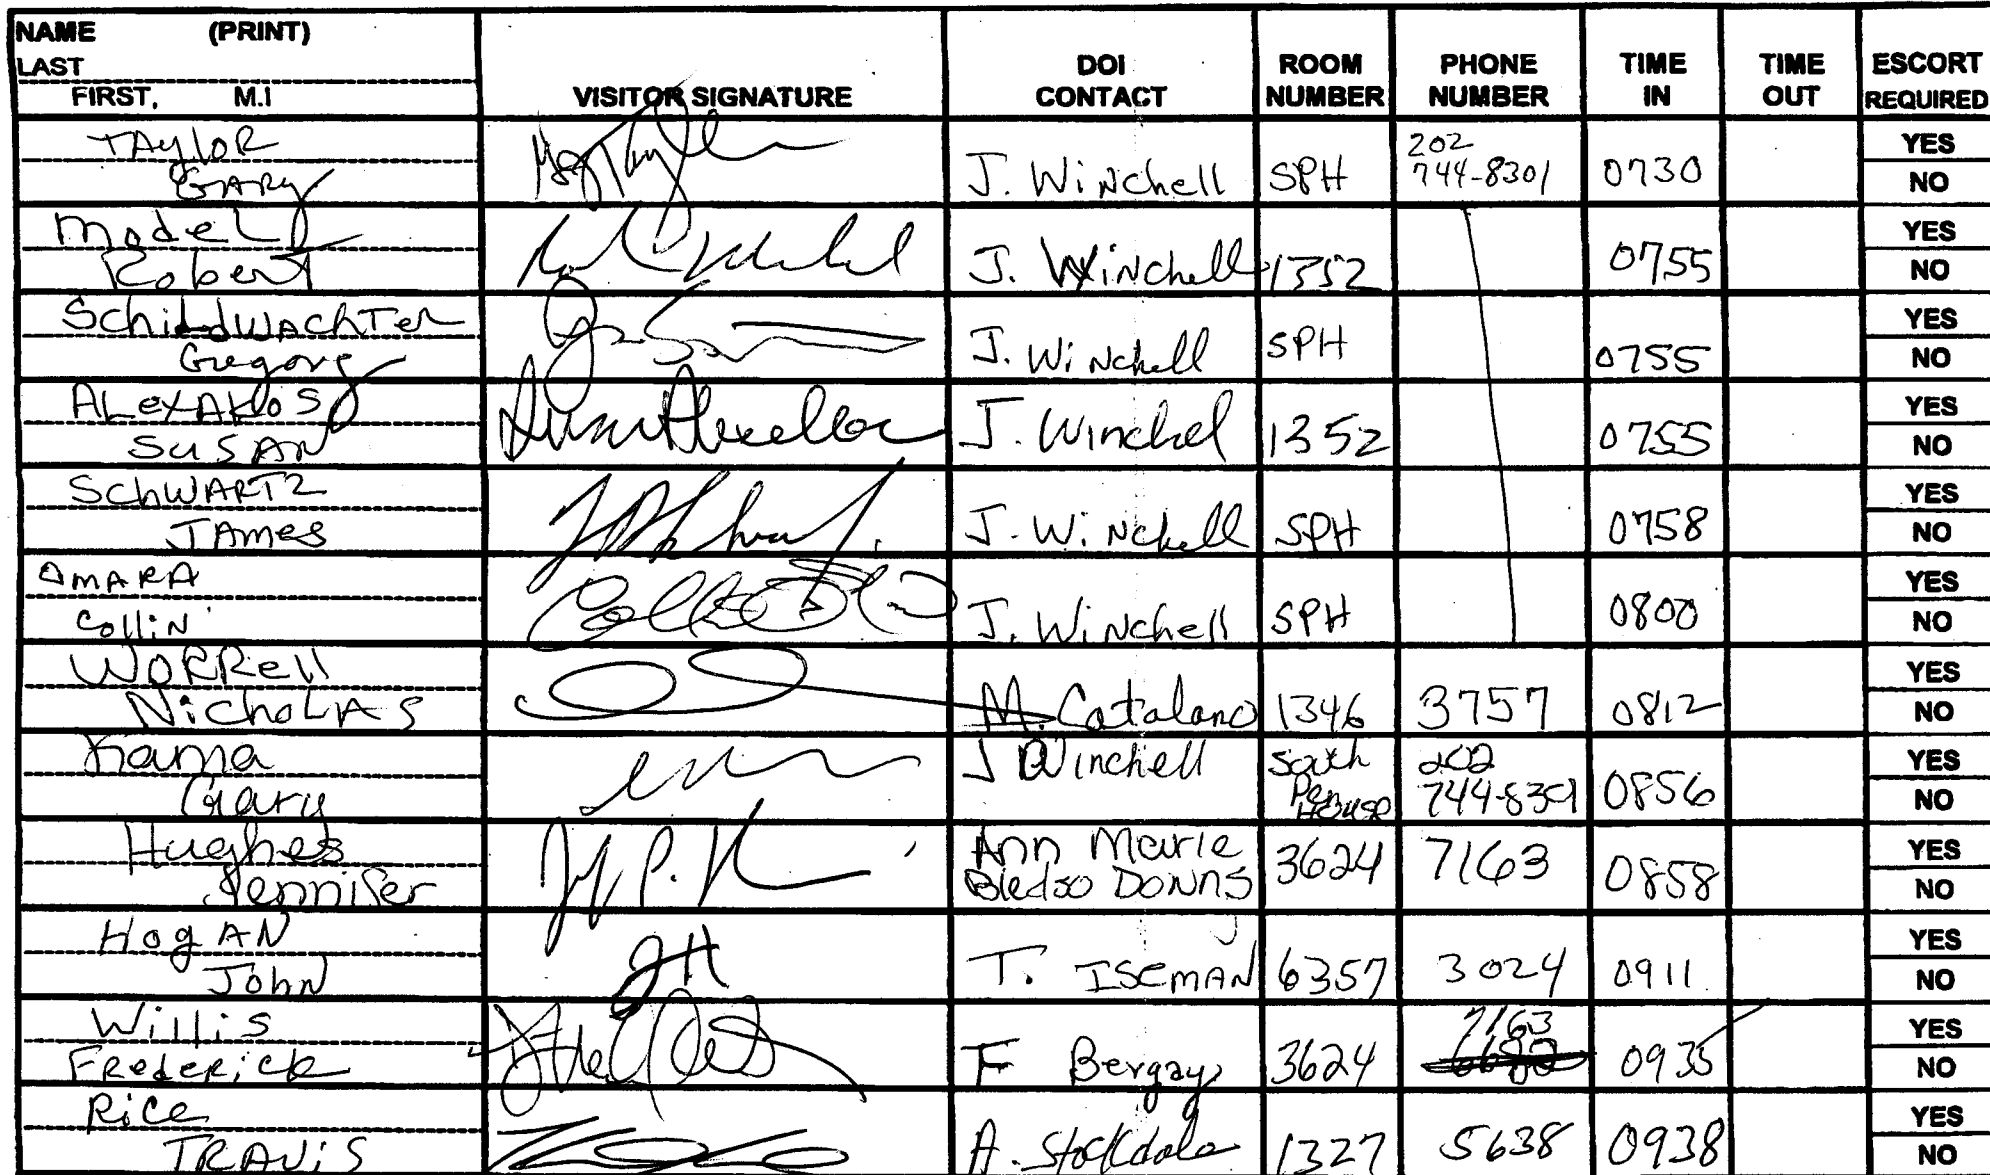 NAME (PRINT)
LAST
FIRST, M.I
VISITOR SIGNATURE
DOI CONTACT
ROOM NUMBER
PHONE NUMBER
TIME IN
TIME OUT
ESCORT REQUIRED
TAylor
GARY
J. Winchell SPH 202 744-8301 0730
YES
NO
Model
Robert
J. Winchell 1352 0755
YES
NO
SchildwAchTer
Gregory
J. Winchell SPH 0755
YES
NO
ALexAKos
SUSAN
J. Winchel 1352 0755
YES
NO
SchWARTZ
JAmes
J. Winchell SPH 0758
YES
NO
OMARA
Collin
J. Winchell SPH 0800
YES
NO
WORRell
NichoLAS
M. Catalano 1346 3757 0812
YES
NO
Kania
Gary
J Winchell South Pen House 202 744-8301 0856
YES
NO
Hughes
Jennifer
Ann Marie Bledso DOWNS 3624 7163 0858
YES
NO
HogAN
John
JH
T. ISEMAN 6357 3024 0911
YES
NO
Willis
FRedeRick
F Bergay 3624 7163 0935
YES
NO
Rice
TRAViS
A. Stockdale 1327 5638 0938
YES
NO